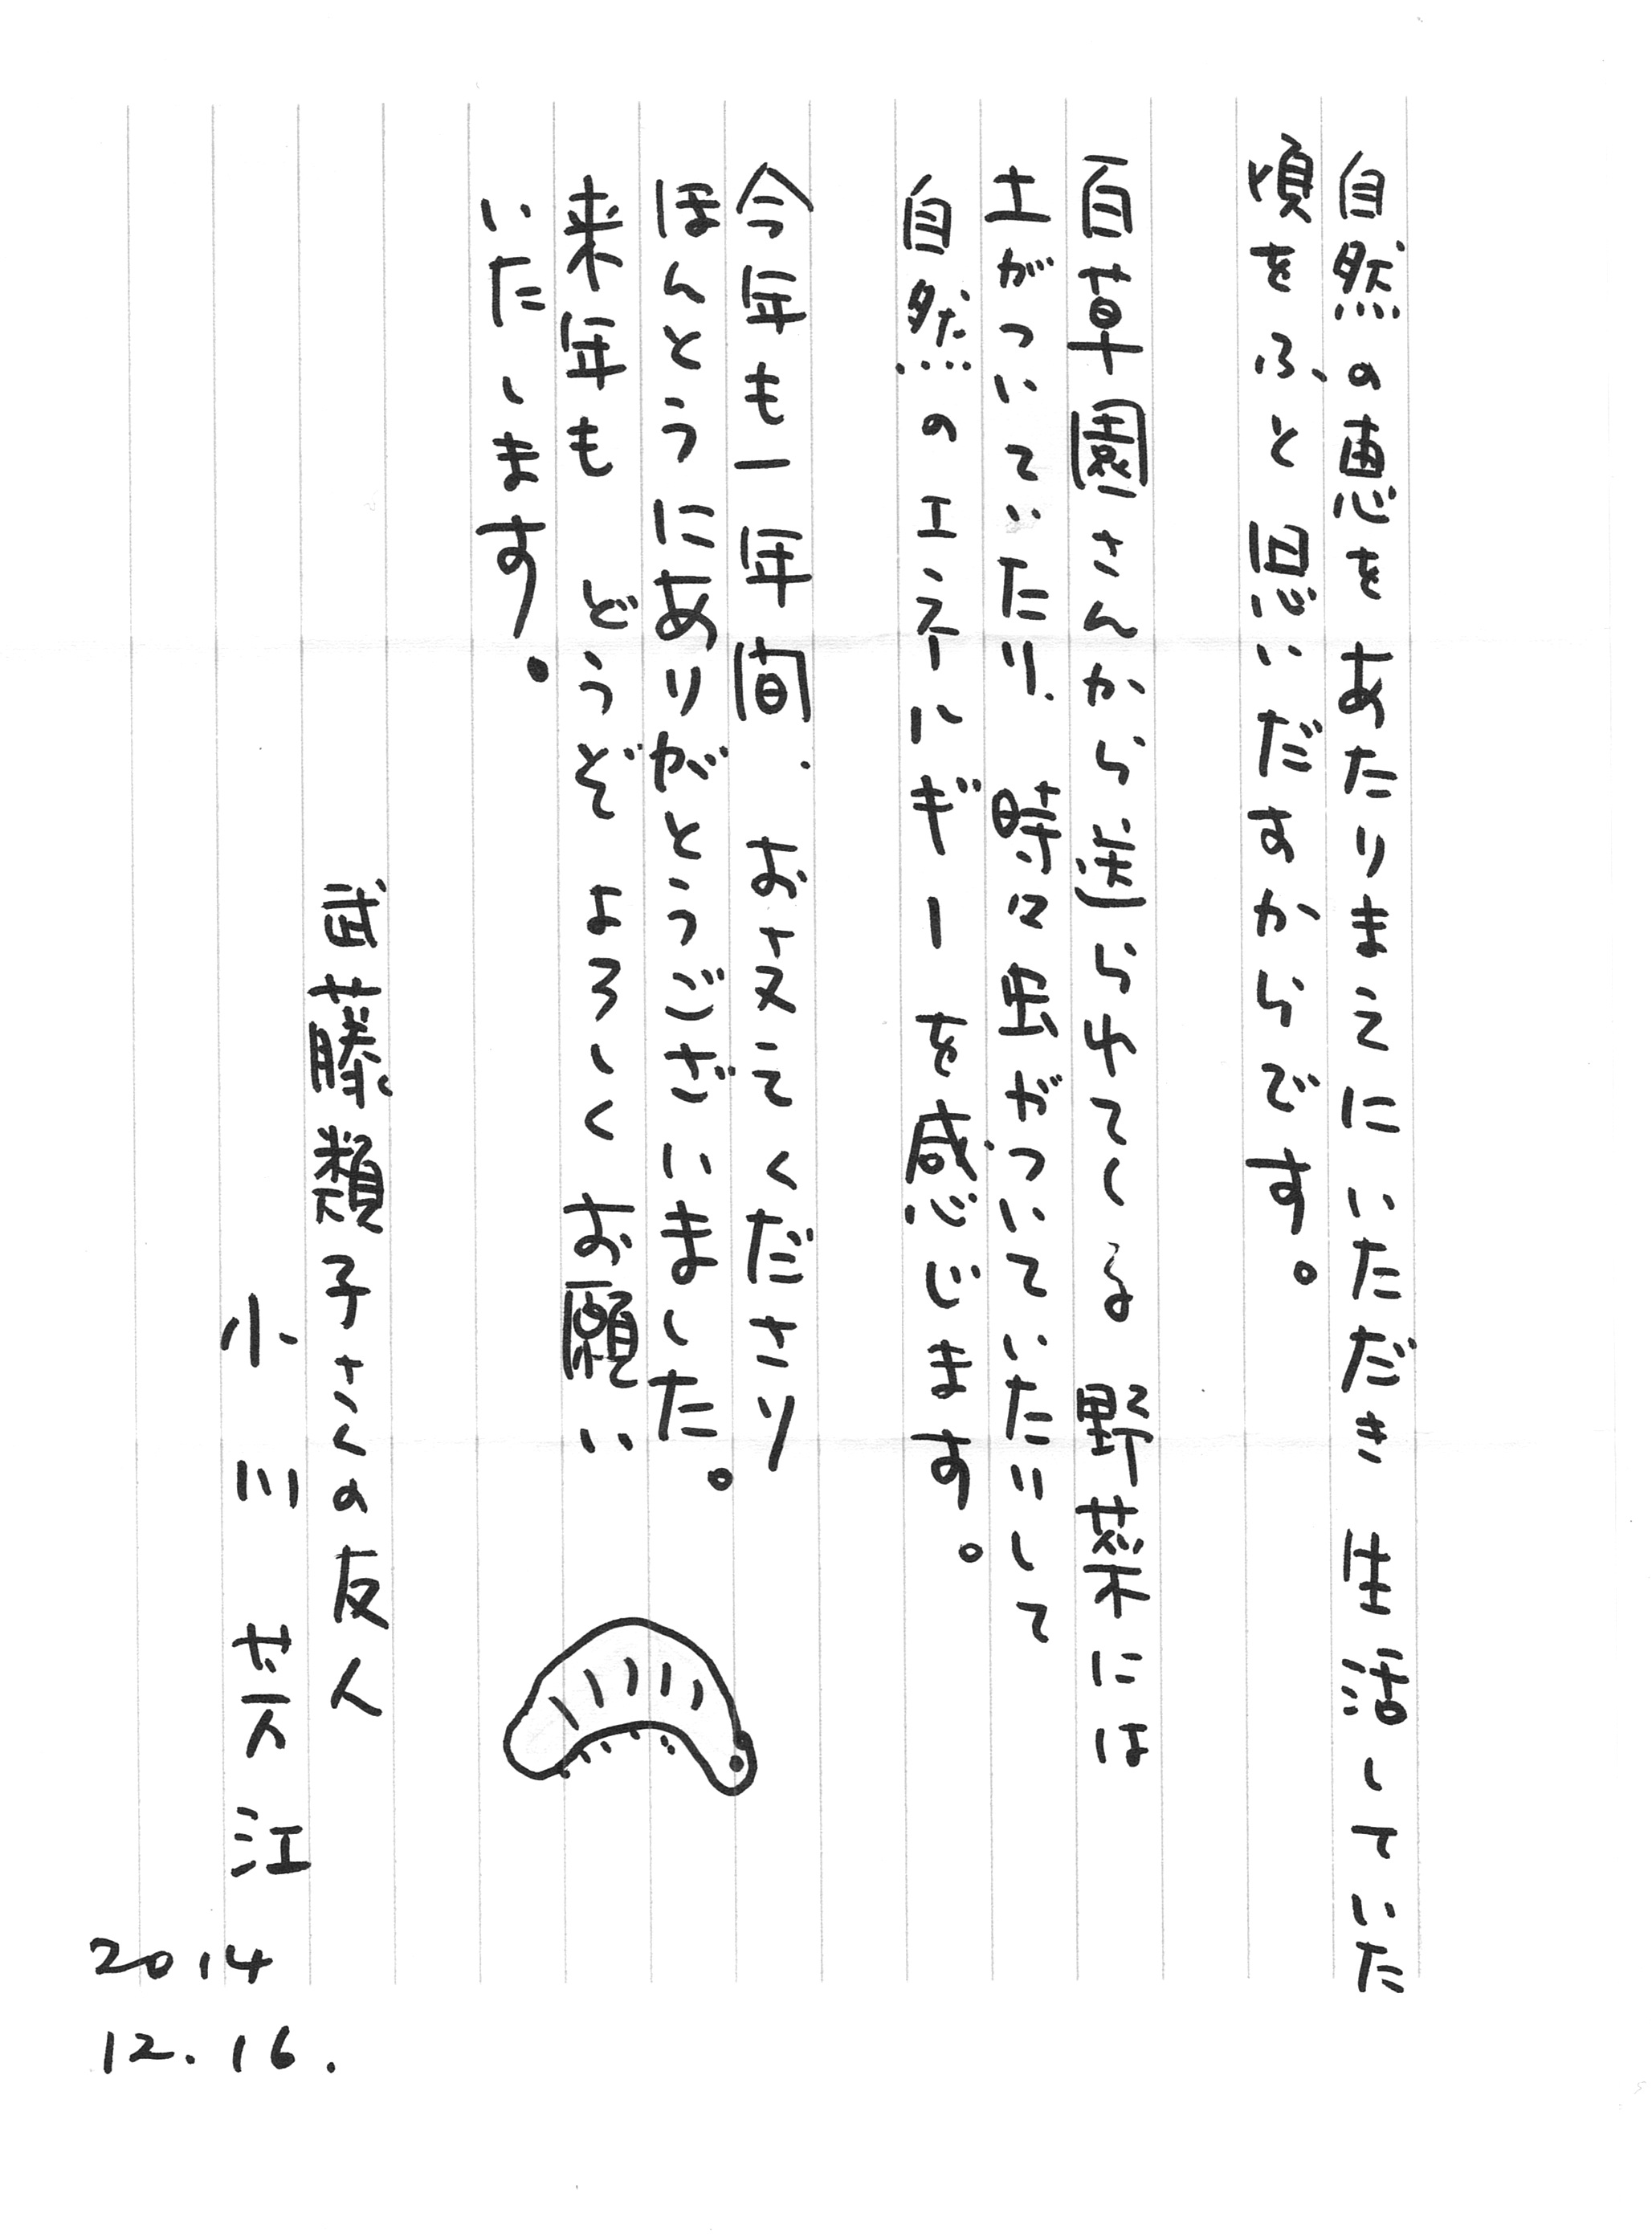 自然の恵をあたりまえにいただき 生活していた
頃をふと思いだすからです。
百草園さんから送られてくる 野菜には
土がついていたり、時々虫がついていたりして
自然のエネルギーを感じます。
今年も一年間、お支えくださり
ほんとうにありがとうございました。
来年も どうぞ よろしく お願い
いたします。
武藤類子さんの友人
小川 芳江
2014
12.16.